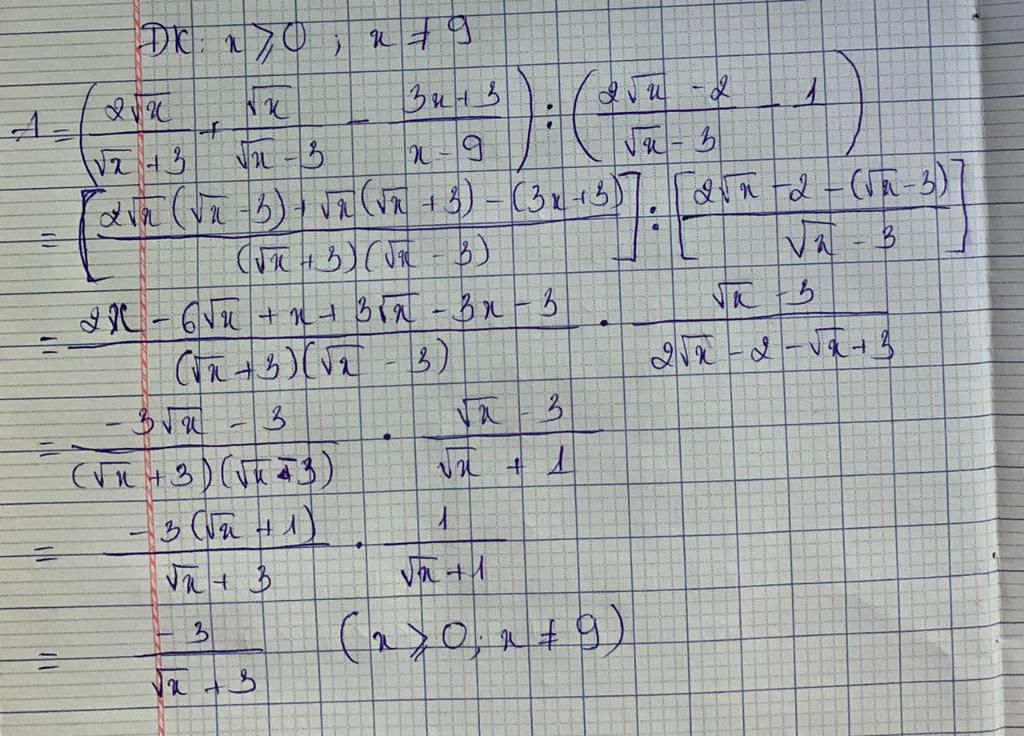 ĐK: x ≥ 0 ; x ≠ 9
A = (2√x / (√x + 3) + √x / (√x - 3) - (3x + 3) / (x - 9)) : ((2√x - 2) / (√x - 3) - 1)
= [(2√x(√x - 3) + √x(√x + 3) - (3x + 3)) / ((√x + 3)(√x - 3))] : [(2√x - 2 - (√x - 3)) / (√x - 3)]
= (2x - 6√x + x + 3√x - 3x - 3) / ((√x + 3)(√x - 3)) . (√x - 3) / (2√x - 2 - √x + 3)
= (-3√x - 3) / ((√x + 3)(√x - 3)) . (√x - 3) / (√x + 1)
= -3(√x + 1) / (√x + 3) . 1 / (√x + 1)
= -3 / (√x + 3) (x ≥ 0; x ≠ 9)